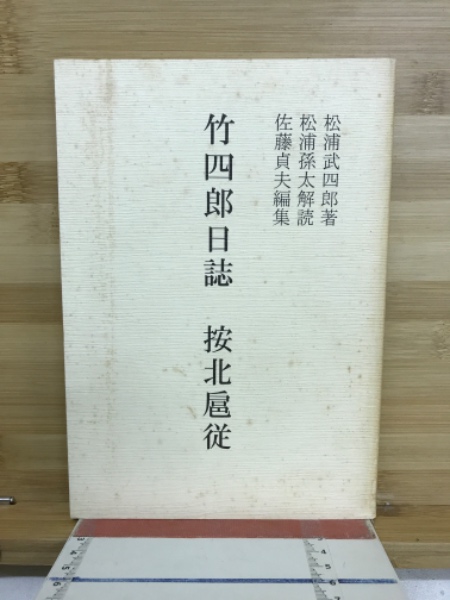 松浦武四郎著
松浦孫太解読
佐藤貞夫編集
竹四郎日誌 按北扈従